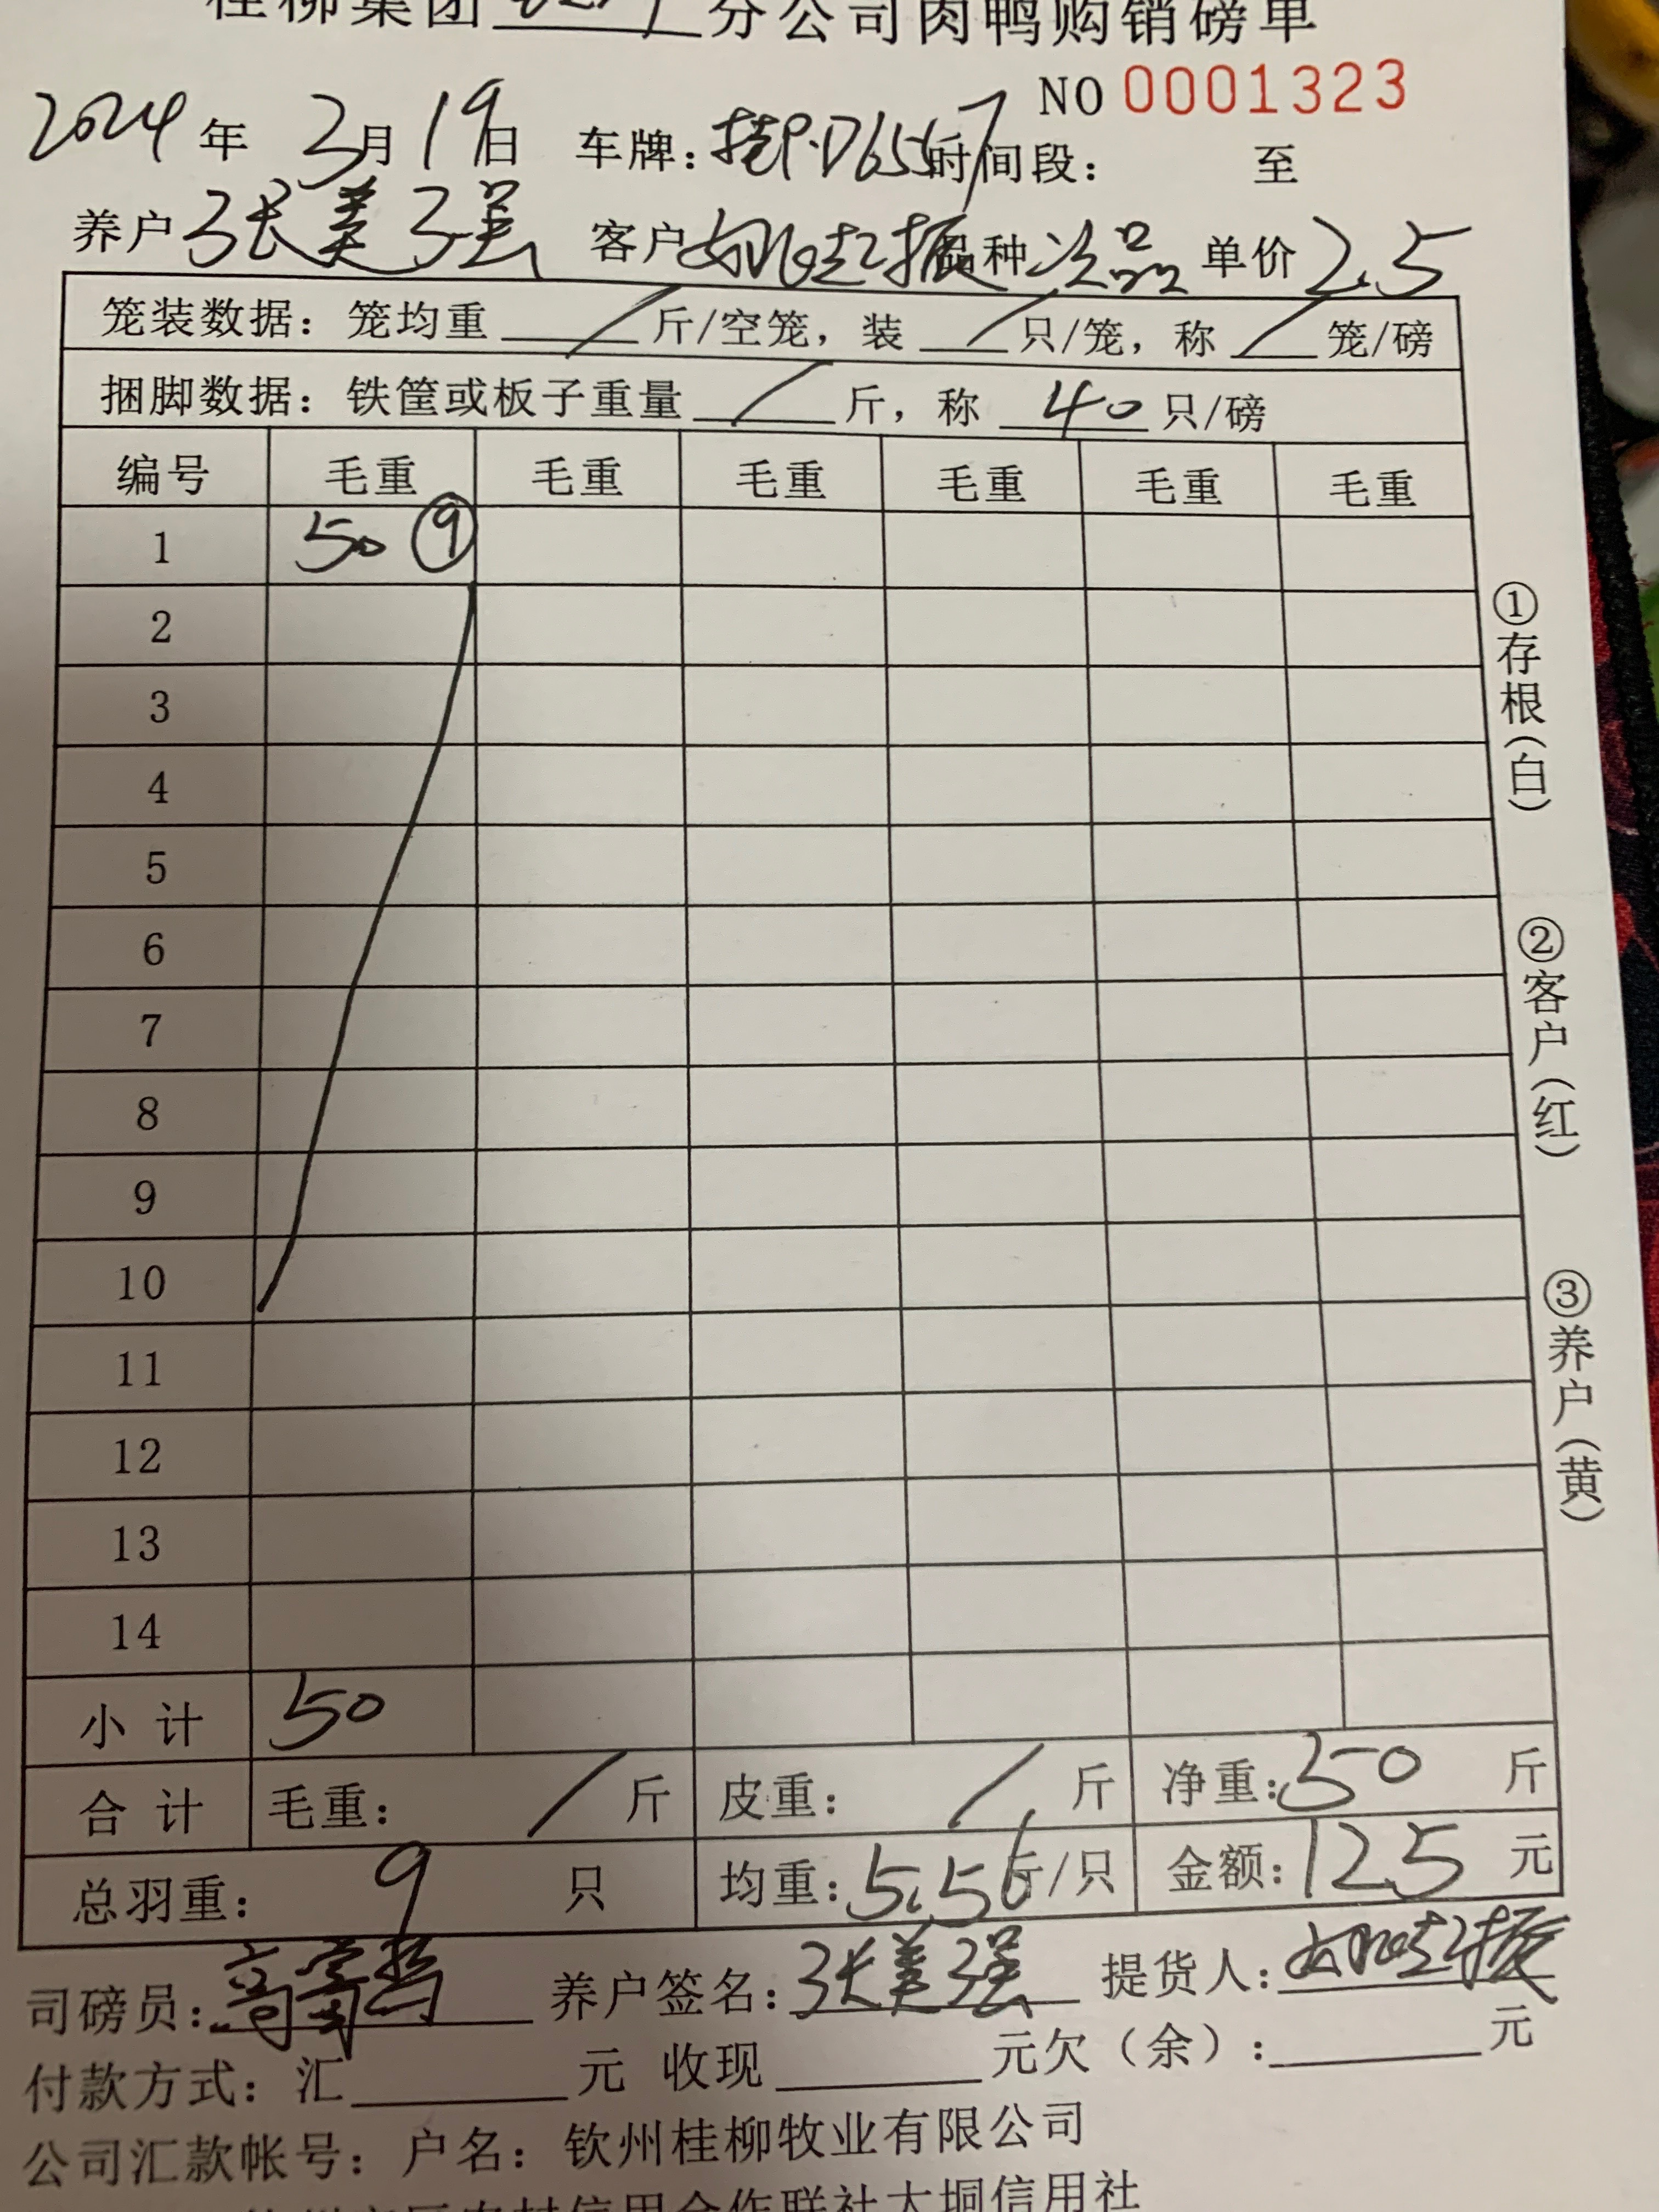 桂柳集团 分公司肉鸭购销磅单
NO 0001323
2024年 3月19日 车牌：桂P·D6557 时间段： 至
养户 张美强 客户 姚起振 品种 次品 单价 2.5
笼装数据：笼均重 / 斤/空笼，装 / 只/笼，称 / 笼/磅
捆脚数据：铁筐或板子重量 / 斤，称 40 只/磅
编号 毛重 毛重 毛重 毛重 毛重 毛重
1 50 ⑨
2
3
4
5
6
7
8
9
10
11
12
13
14
小计 50
合计 毛重： / 斤 皮重： / 斤 净重：50 斤
总羽重： 9 只 均重：5.56斤/只 金额：125 元
①存根（白）
②客户（红）
③养户（黄）
司磅员： 养户签名：张美强 提货人：姚起振
付款方式：汇 元 收现 元欠（余）： 元
公司汇款帐号：户名：钦州桂柳牧业有限公司
农村信用合作联社大垌信用社